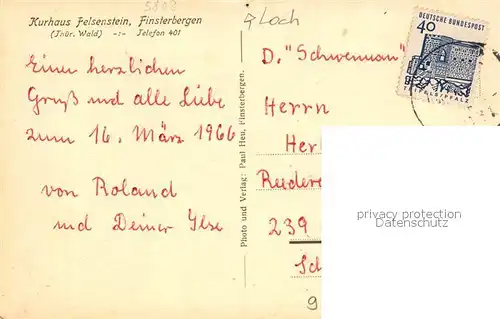 5808
Kurhaus Felsenstein, Finsterbergen
(Thür. Wald) -:- Telefon 401
Einen herzlichen
Gruß und alle Liebe
zum 16. März 1966
von Roland
und Deiner Ilse
Photo und Verlag: Paul Heu, Finsterbergen.
4 Loch
D. "Schwennau"
Herrn
Her
Reedere
239
Sch
9
DEUTSCHE BUNDESPOST
40
TRIFELS/PFALZ
privacy protection
Datenschutz